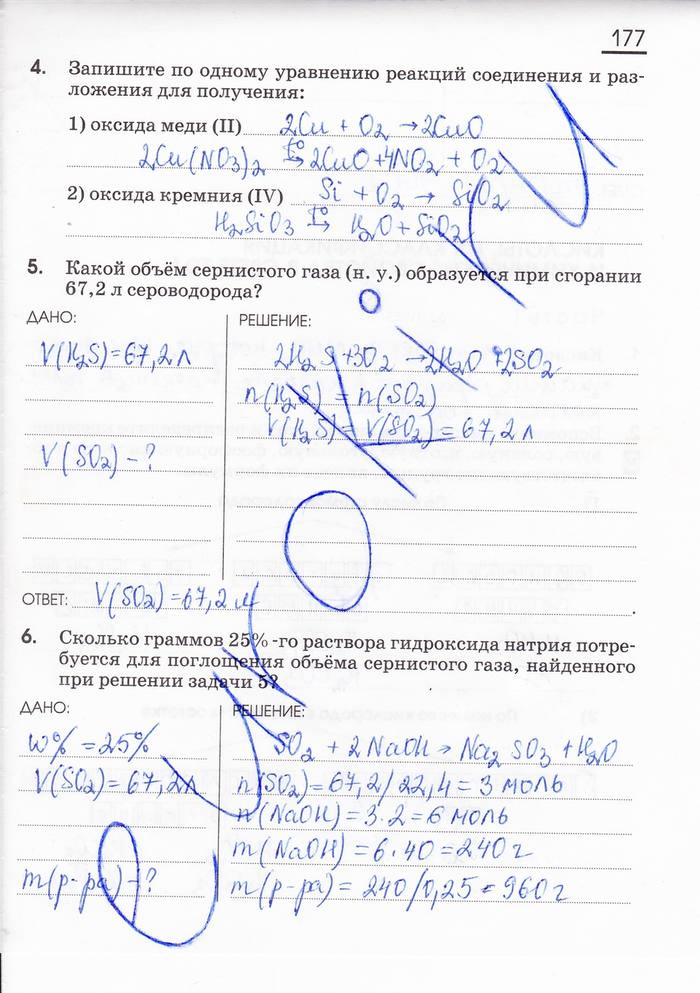 177
4. Запишите по одному уравнению реакций соединения и раз-
ложения для получения:
1) оксида меди (II) 2Cu + O₂ → 2CuO
2Cu(NO₃)₂ t°→ 2CuO + 4NO₂ + O₂
2) оксида кремния (IV) Si + O₂ → SiO₂
H₂SiO₃ t°→ H₂O + SiO₂
5. Какой объём сернистого газа (н. у.) образуется при сгорании
67,2 л сероводорода?
ДАНО:
V(H₂S) = 67,2 л
V(SO₂) - ?
РЕШЕНИЕ:
2H₂S + 3O₂ → 2H₂O + 2SO₂
n(H₂S) = n(SO₂)
V(H₂S) = V(SO₂) = 67,2 л
ОТВЕТ: V(SO₂) = 67,2 л
6. Сколько граммов 25%-го раствора гидроксида натрия потре-
буется для поглощения объёма сернистого газа, найденного
при решении задачи 5?
ДАНО:
w% = 25%
V(SO₂) = 67,2 л
m(р-ра) - ?
РЕШЕНИЕ:
SO₂ + 2NaOH → Na₂SO₃ + H₂O
n(SO₂) = 67,2/22,4 = 3 моль
n(NaOH) = 3·2 = 6 моль
m(NaOH) = 6·40 = 240 г
m(р-ра) = 240/0,25 = 960 г